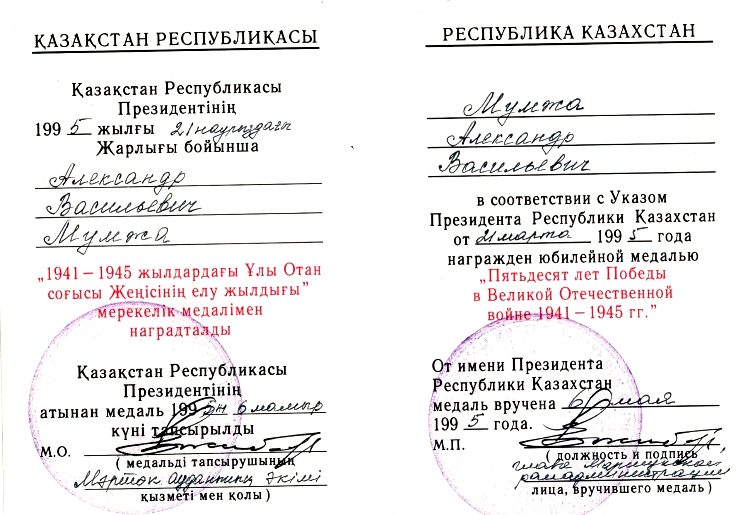 ҚАЗАҚСТАН РЕСПУБЛИКАСЫ
Қазақстан Республикасы
Президентінің
1995 жылғы 21 наурыздағы
Жарлығы бойынша
Александр
Васильевич
Мумжа
„1941–1945 жылдардағы Ұлы Отан
соғысы Жеңісінің елу жылдығы”
мерекелік медалімен
наградталды
Қазақстан Республикасы
Президентінің
атынан медаль 1995 ж 6 мамыр
күні тапсырылды
М.О.
( медальді тапсырушының
Мәртөк аудантың Әкімі
қызметі мен қолы )
РЕСПУБЛИКА КАЗАХСТАН
Мумжа
Александр
Васильевич
в соответствии с Указом
Президента Республики Казахстан
от 21 марта 1995 года
награжден юбилейной медалью
„Пятьдесят лет Победы
в Великой Отечественной
войне 1941–1945 гг.”
От имени Президента
Республики Казахстан
медаль вручена 6 мая
1995 года.
М.П.
( должность и подпись
глава Мартукской
райадминистрации
лица, вручившего медаль )